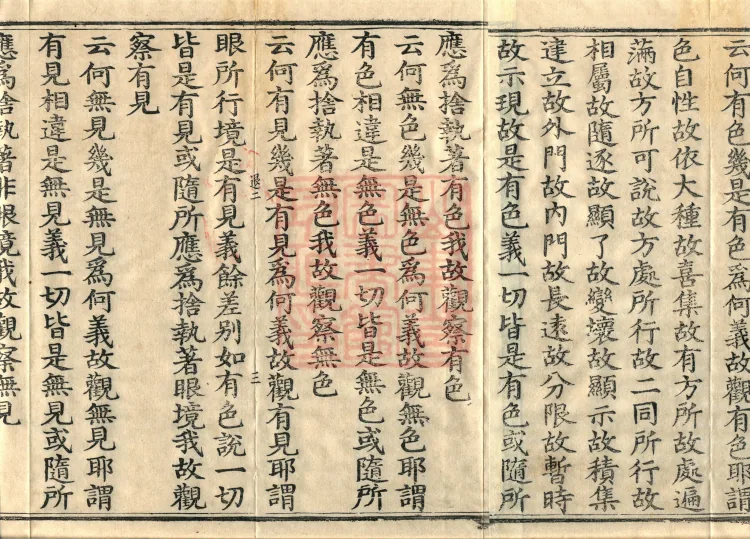 云何有色幾是有色爲何義故觀有色耶謂
色自性故依大種故喜集故有方所故處遍
滿故方所可說故方處所行故二同所行故
相屬故隨逐故顯了故變壞故顯示故積集
建立故外門故內門故長遠故分限故暫時
故示現故是有色義一切皆是有色或隨所
應爲捨執著有色我故觀察有色
云何無色幾是無色爲何義故觀無色耶謂
有色相違是無色義一切皆是無色或隨所
應爲捨執著無色我故觀察無色
云何有見幾是有見爲何義故觀有見耶謂
退二 三
眼所行境是有見義餘差別如有色說一切
皆是有見或隨所應爲捨執著眼境我故觀
察有見
云何無見幾是無見爲何義故觀無見耶謂
有見相違是無見義一切皆是無見或隨所
應爲捨執著非眼境我故觀察無見